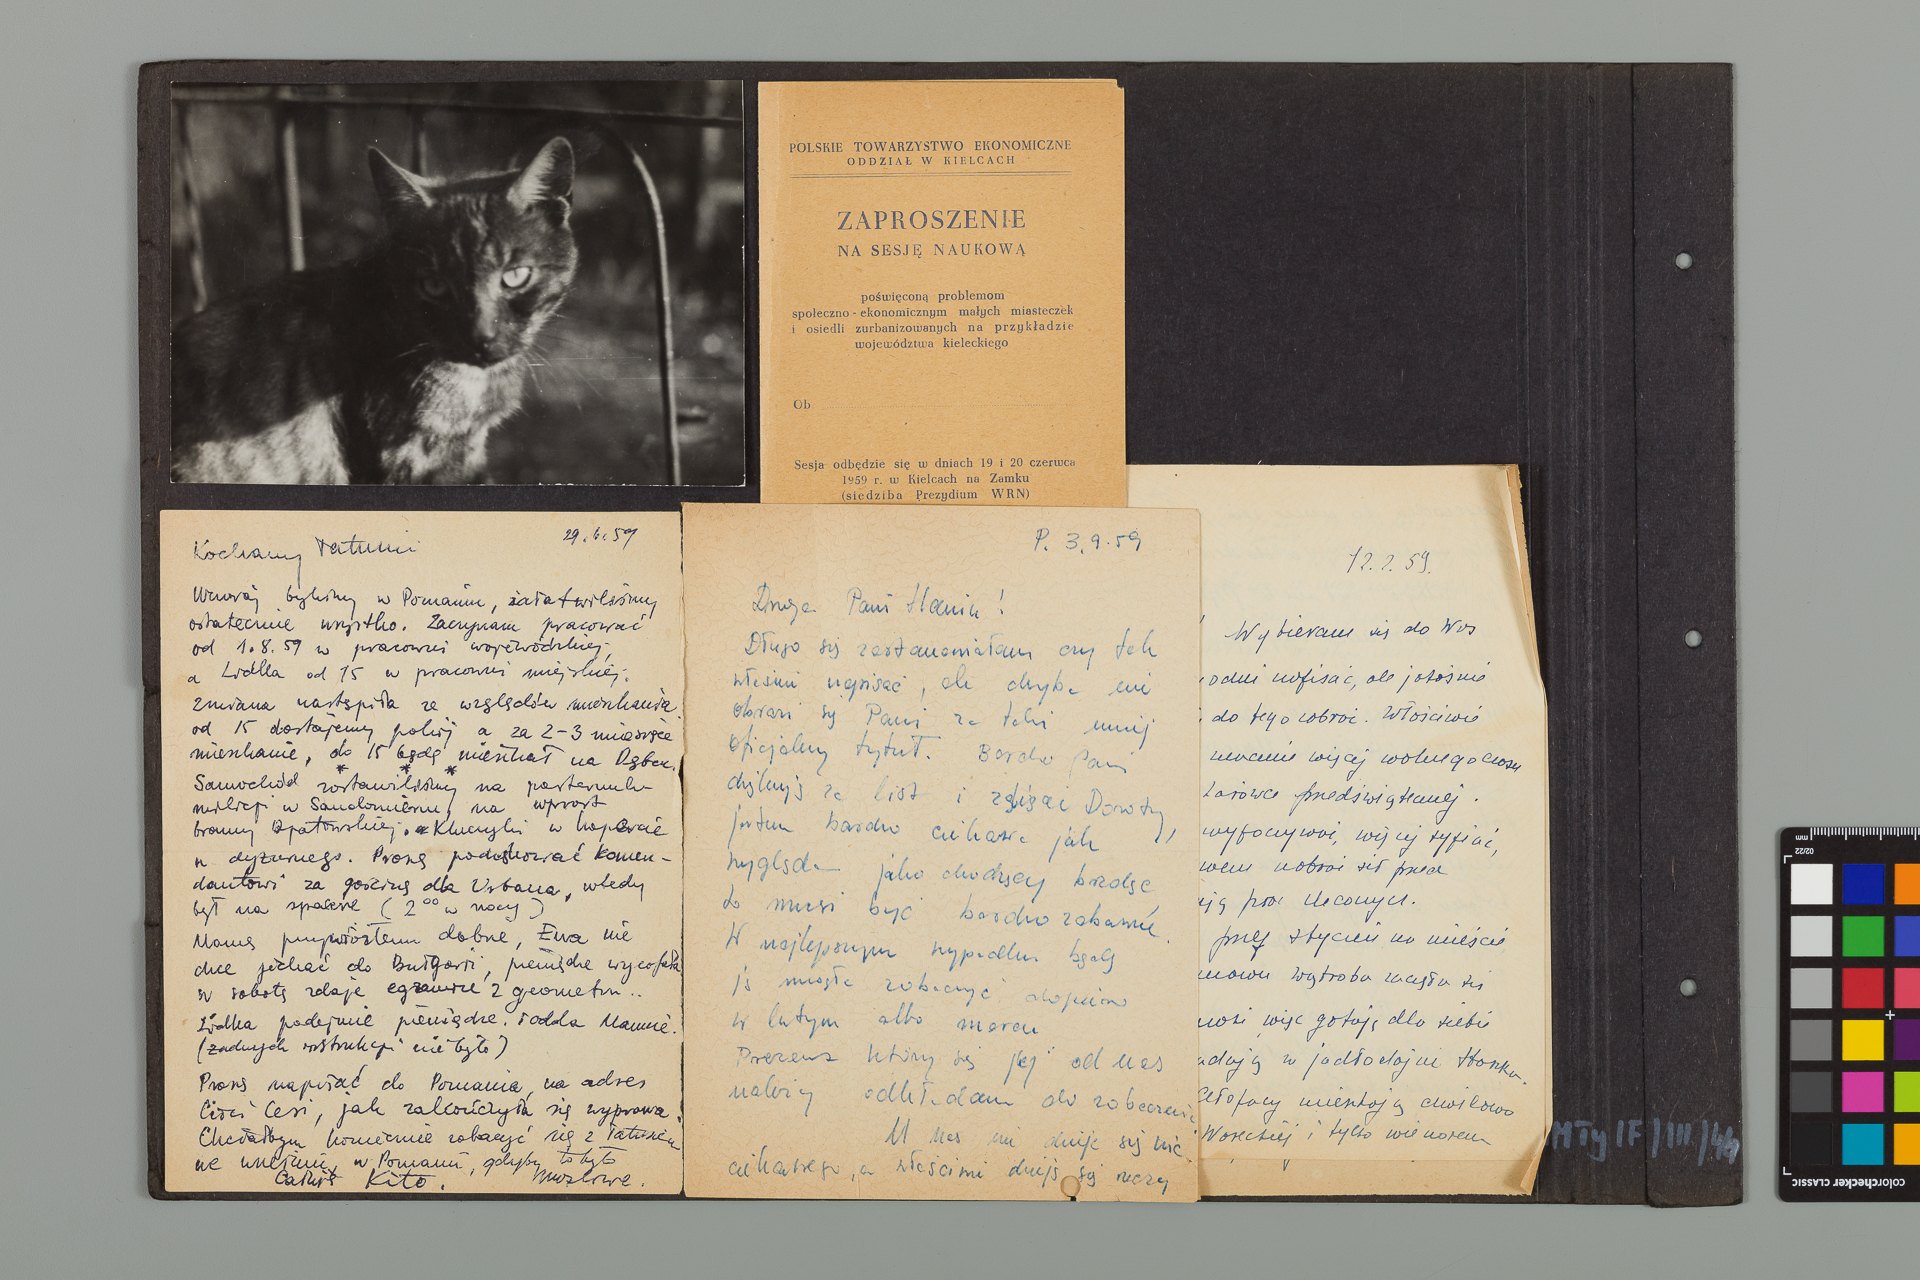 POLSKIE TOWARZYSTWO EKONOMICZNE
ODDZIAŁ W KIELCACH
ZAPROSZENIE
NA SESJĘ NAUKOWĄ
poświęconą problemom
społeczno-ekonomicznym małych miasteczek
i osiedli zurbanizowanych na przykładzie
województwa kieleckiego
Ob
Sesja odbędzie się w dniach 19 i 20 czerwca
1959 r. w Kielcach na Zamku
(siedziba Prezydium WRN)
29.6.59
Kochany Tatusiu
Wczoraj byliśmy w Poznaniu, załatwiliśmy
ostatecznie wszystko. Zaczynam pracować
od 1.8.59 w pracowni wojewódzkiej,
a Lidka od 15 w pracowni miejskiej.
Zmiana nastąpiła ze względów mieszkania
od 15 dostajemy pokój a za 2-3 miesiące
mieszkanie, do 15 będę mieszkał na Dębcu.
Samochód zostawiliśmy na posterunku
milicji w Sandomierzu, na wprost
bramy Opatowskiej. Kluczyki w kopercie
u dyżurnego. Proszę podziękować Komen-
dantowi za gościnę dla Urbana, wtedy
był na spacerze (2⁰⁰ w nocy)
Mamę przywiozłem dobrze, Ewa nie
chce jechać do Bułgarii, pieniądze wycofała
w sobotę zdaje egzamin z geometrii..
Lidka podejmie pieniądze i odda Mamie.
(żadnych instrukcji nie było)
Proszę napisać do Poznania, na adres
Cioci Cesi, jak zakończyła się wyprawa.
Chciałbym koniecznie zobaczyć się z Tatusiem
we wrześniu, w Poznaniu, gdyby to było
możliwe.
Całuję Kito.
P. 3.9.59
Droga Pani Haniu!
Długo się zastanawiałam czy tak
właśnie napisać, ale chyba nie
obrazi się Pani za taki mniej
oficjalny tytuł. Bardzo Pani
dziękuję za list i zdjęcie Doroty,
jestem bardzo ciekawa jak
wygląda jako chodzący brzdąc
to musi być bardzo zabawne.
W najlepszym wypadku będę
ją mogła zobaczyć dopiero
w lutym albo marcu
Prezent który się jej od nas
należy odkładam do zobaczenia
U nas nie dzieje się nic
ciekawego, a właściwie dzieją się rzeczy
12.2.59.
Wybieram się do Was
napisać, ale jakoś nie
do tego zabrać. Właściwie
znacznie więcej wolnego czasu
przedświątecznej.
wypoczywać, więcej sypiać,
nabrać sił przed
styczeń na mieście
wątroba zaczęła się
więc gotuję dla siebie
w jadłodajni
mieszkają chwilowo
i tylko wieczorem
MŁy IF/III/44
colorchecker CLASSIC
mm
02/22